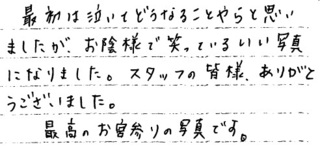 最初は泣いてどうなることやらと思い
ましたが、お陰様で笑っているいい写真
になりました。スタッフの皆様、ありがと
うございました。
最高のお宮参りの写真です。